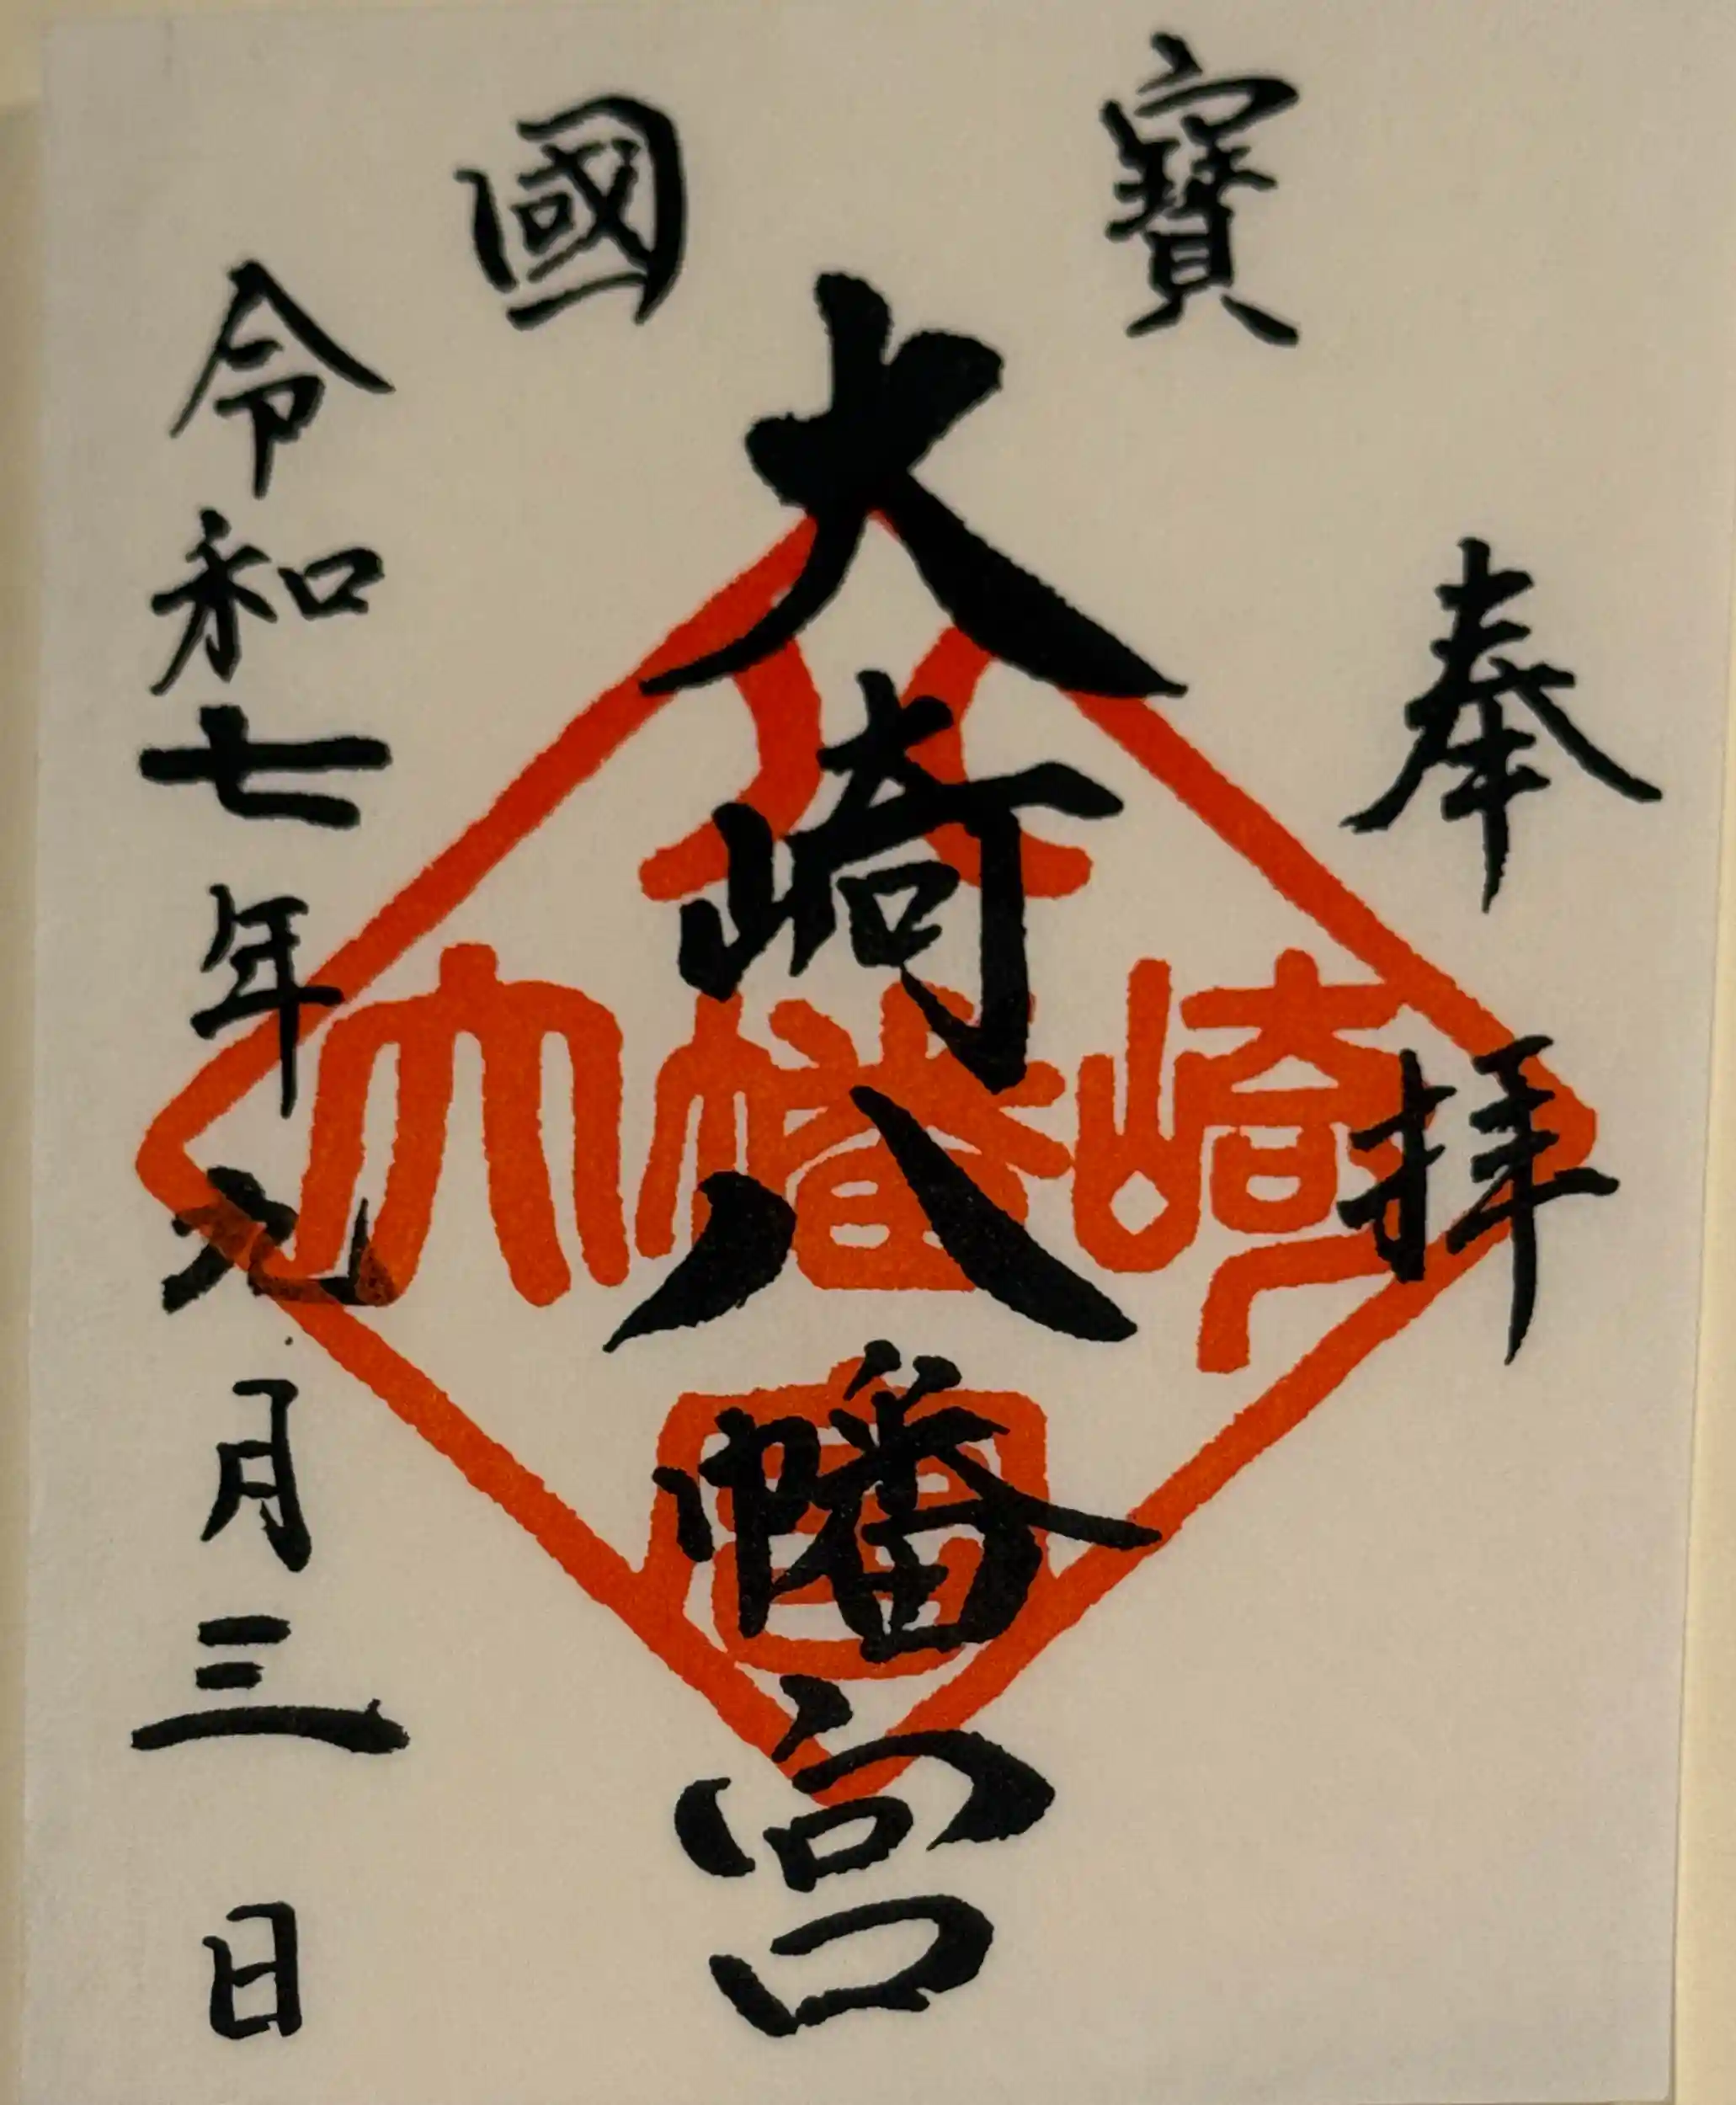 奉拝
國寶
大崎八幡宮
令和七年九月三日
八
大幡崎
宮